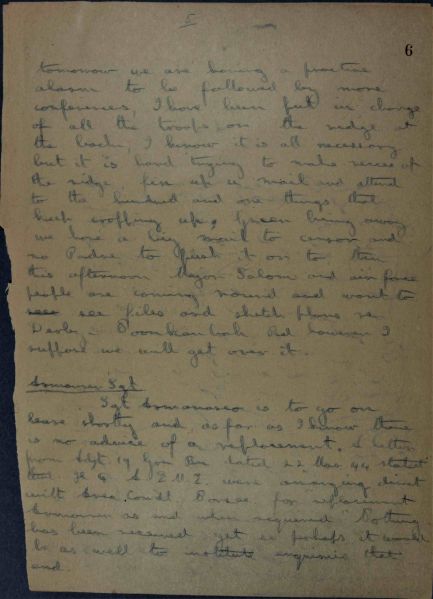 5
6
tomorrow we are having a practice
alarm to be followed by more
conferences, I have been put in charge
of all the troops on the ridge at
the back, I know it is all necessary
but it is hard trying to make recces of
the ridge, fix up a mail and attend
to the hundred and one things that
keep cropping up, Green being away
we have a big mail to censor and
no Padre to push it on to then
this afternoon Major and air force
people are coming round and want to
see files and sketch plans re
Derby - Road however I
suppose we will get over it.
Armourer Sgt
Sgt is to go on
leave shortly and, as far as I know there
is no advice of a replacement. A letter
from Adjt. 19 Bn dated 22 Mar 44 stated
that H Q were arranging direct
with for replacement
Armourer as and when required "Nothing
has been received yet so perhaps it would
be as well to enquiries that
end.